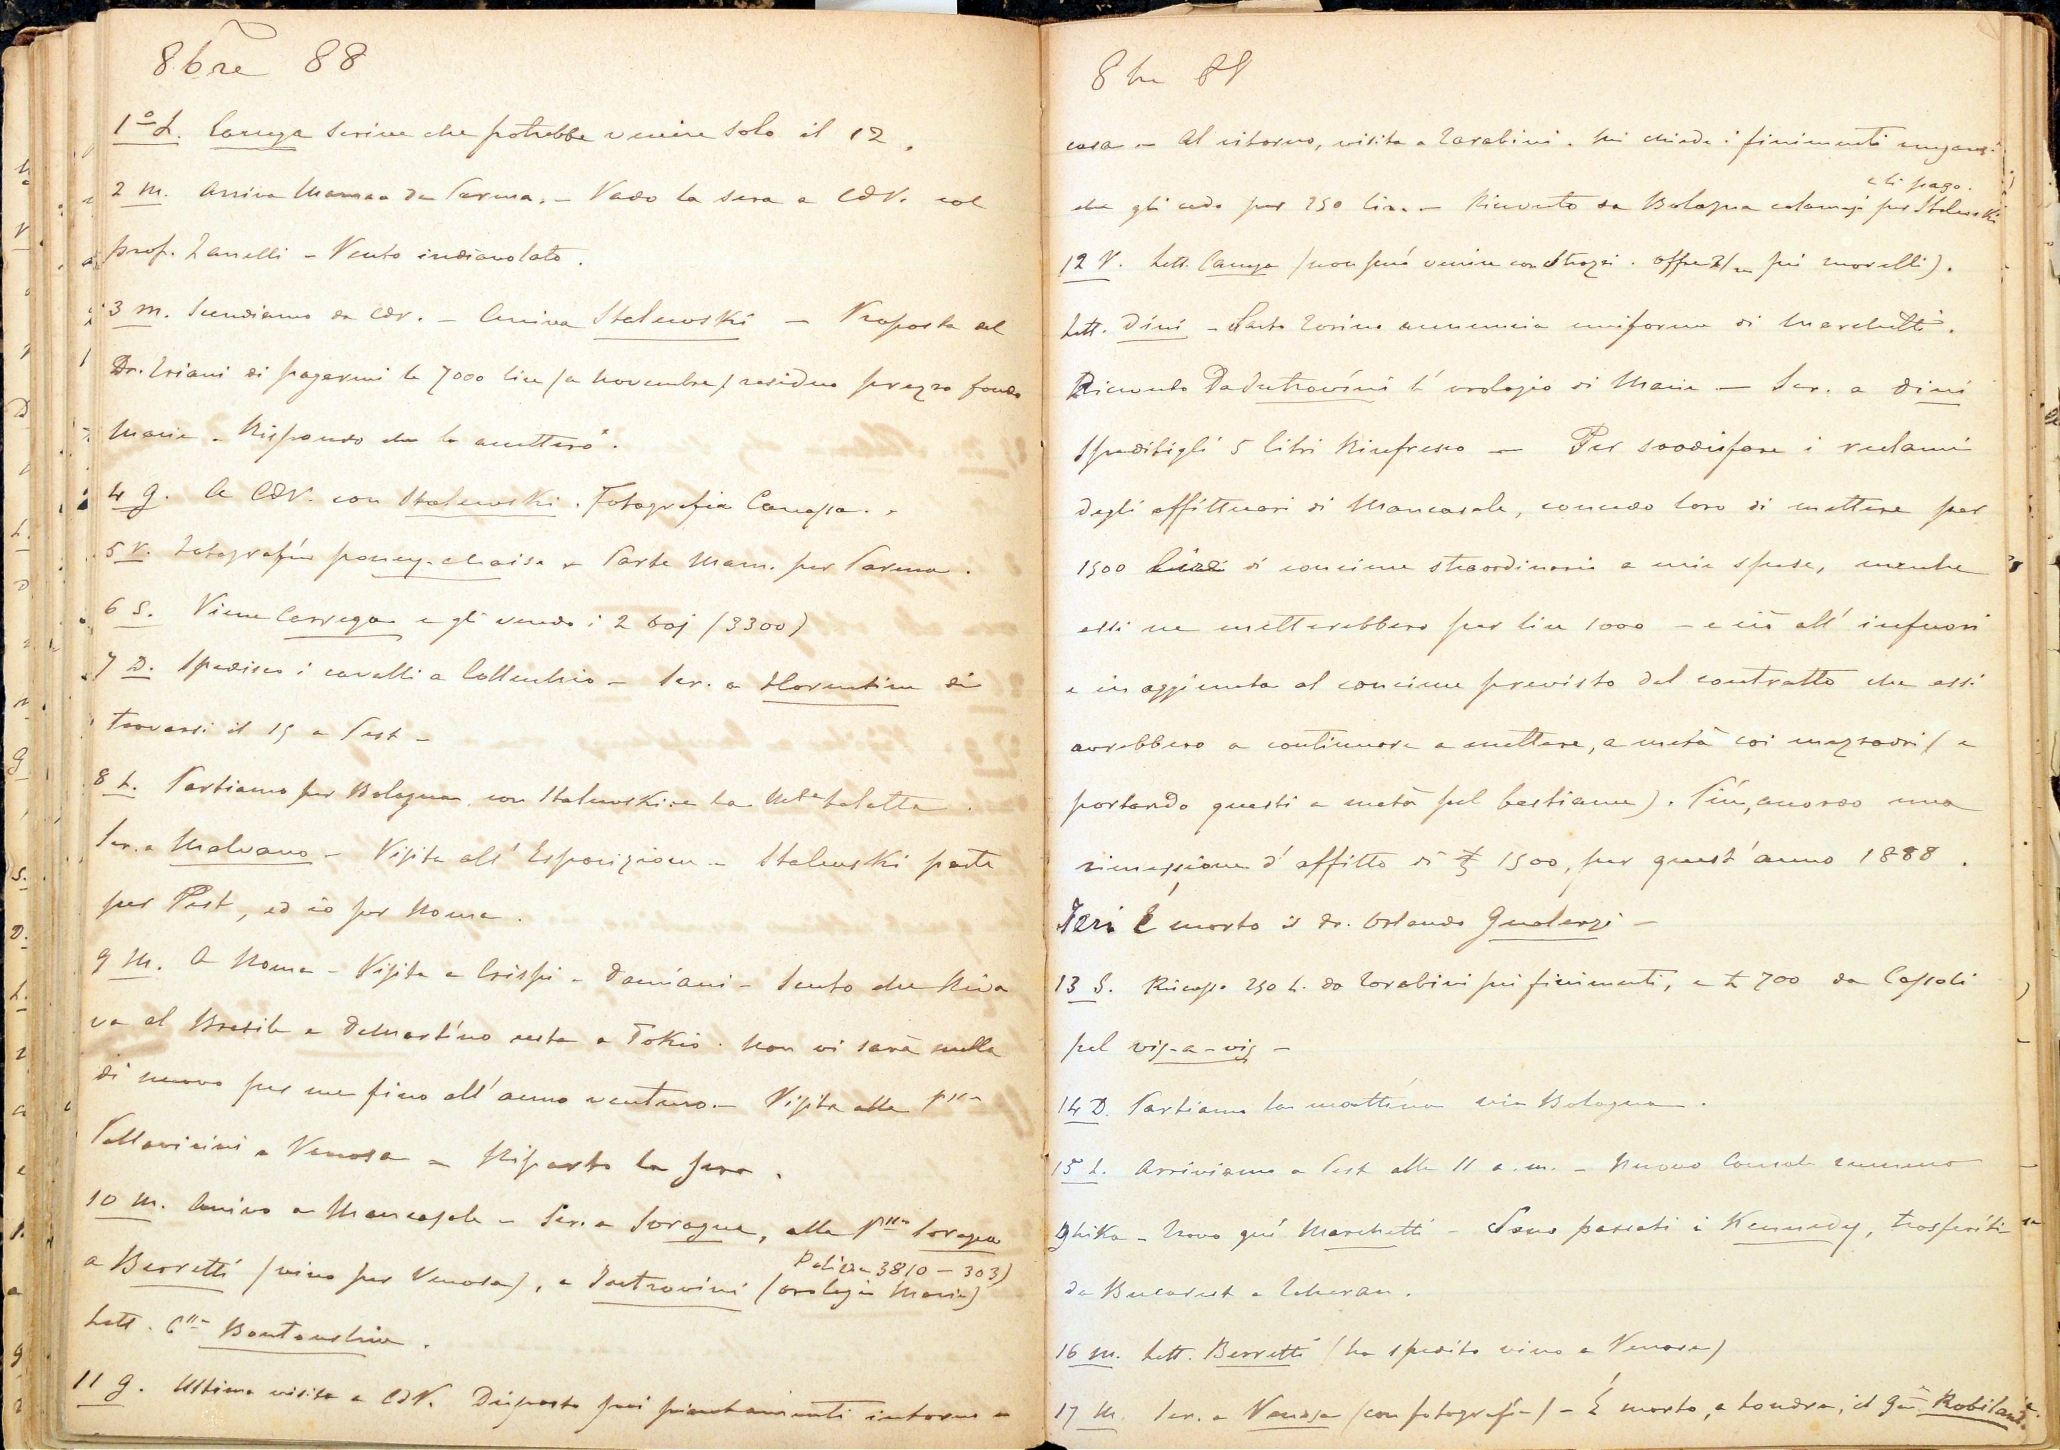 8bre 88
1º L. Carrega scrive che potrebbe venire solo il 12.
2 M. Arriva Mamma da Parma. – Vado la sera a CdV. col
prof. Zanelli – Vento indiavolato.
3 M. Scendiamo da CdV. – Arriva Stalewski – Proposta del
Dr. Triani di pagarmi le 7000 lire (a novembre) residuo prezzo fondo
Maria – Rispondo che le accetterò.
4 G. A CdV. con Stalewski. Fotografia Canossa. –
5 V. Fotografia poney-chaise – Parte Mam. per Parma.
6 S. Viene Carrega e gli vendo i 2 baj (3300)
7 D. Spedisco i cavalli a Collecchio – Scr. a Florentine di
trovarsi il 15 a Pest –
8 L. Partiamo per Bologna con Stalewski e la
Scr. a Malvano – Visita all'Esposizione – Stalewski parte
per Pest, ed io per Roma.
9 M. A Roma – Visita a Crispi – Damiani – Sento che Riva
va al Brasile e DeMartino resta a Tokio. Non vi sarà nulla
di nuovo per me fino all'anno venturo. – Visita alle Pssa
Pallavicini e Venosa – Riparto la sera.
10 M. Arrivo a Mancasale – Scr. a Soragna, alla Pssa Soragna
a Berretti (vino per Venosa), a Dutrovini (orologio Maria)
Polizza 3810 – 303)
Lett. Cssa Bentouchine.
11 G. Ultima visita a CdV. Disposto pei piantamenti intorno a
8bre 88
casa – Al ritorno, visita a Tarabini. Mi chiede i finimenti ungaresi
che gli cedo per 250 lire. – Ricevuto da Bologna calamaji per Stalewski
e li pago.
12 V. Lett. Carrega (non può venire con Strozzi. offre 2/m pei morelli).
Lett. Dini – Sarto Torino annuncia uniforme di Marchetti.
Ricevuto Da Dutrovini l'orologio di Maria – Scr. a Dini
Speditigli 5 litri Rinfresco – Per soddisfare i reclami
degli affittuari di Mancasale, concedo loro di mettere per
1500 Lire di concime straordinario a mie spese, mentre
essi ne metterebbero per lire 1000 – e ciò all'infuori
e in aggiunta al concime previsto dal contratto che essi
avrebbero a continuare a mettere, a metà coi mezzadri (e
portando questi a metà pel bestiame). Più, accordo una
rimessione d'affitto di £ 1500, per quest'anno 1888.
Jeri È morto il Dr. Orlando Gualerzi –
13 S. Riscosse 250 L. da Tarabini pei finimenti, e £ 700 da Cassoli
pel vis-a-vis –
14 D. Partiamo la mattina via Bologna.
15 L. Arriviamo a Pest alle 11 a.m. – Nuovo Console rumeno
Ghika – Trovo qui Marchetti – Sono passati i Kennedy, trasferiti
da Bucarest a Teheran.
16 M. Lett. Berretti (ha spedito vino a Venosa)
17 M. Scr. a Venosa (con fotografia) – È morto, a Londra, il Gen. Robilant.